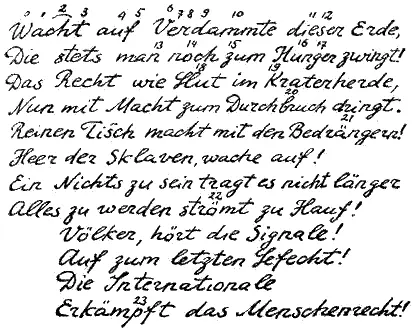 0 1 2 3 4 5 6 7 8 9 10 11 12
Wacht auf Verdammte dieser Erde,
13 14 15 16 17
Die stets man noch zum Hunger zwingt!
18 19
Das Recht wie Glut im Kraterherde,
20
Nun mit Macht zum Durchbruch dringt.
21
Reinen Tisch macht mit den Bedrängern!
Heer der Sklaven, wache auf!
Ein Nichts zu sein tragt es nicht länger
22
Alles zu werden strömt zu Hauf!
Völker, hört die Signale!
Auf zum letzten Gefecht!
Die Internationale
23
Erkämpft das Menschenrecht!